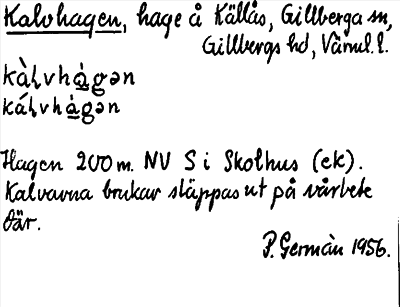 Kalvhagen, hage å Källås, Gillberga sn,
Gillbergs hd, Värml. l.
kàḷvhá̤gən
káḷvhà̤gən
Hagen 200 m. NV S i Skolhus (ek).
Kalvarna brukar släppas ut på vårbete
där.
P. Germàn 1956.